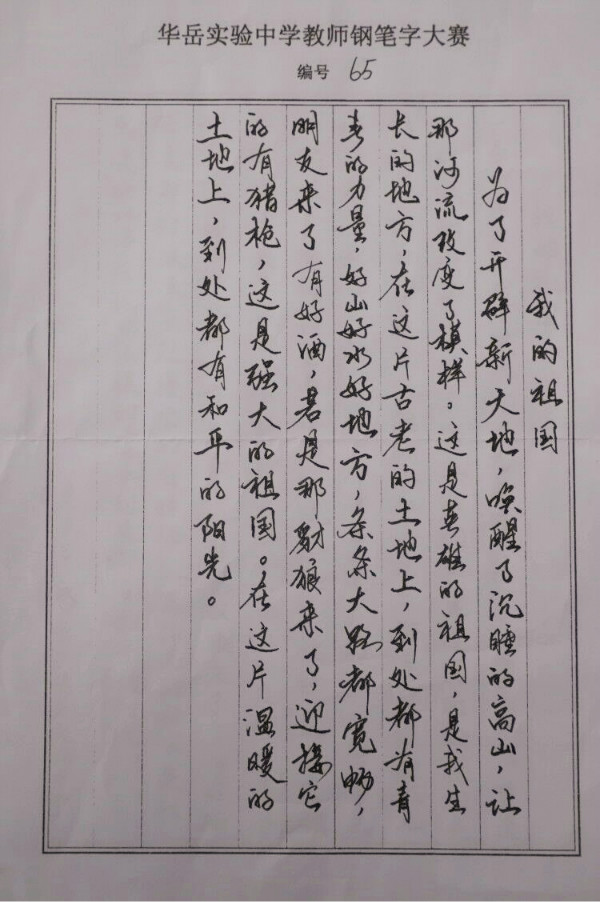 华岳实验中学教师钢笔字大赛
编号 65
我的祖国
为了开辟新天地，唤醒了沉睡的高山，让
那河流改变了模样。这是英雄的祖国，是我生
长的地方，在这片古老的土地上，到处都有青
春的力量，好山好水好地方，条条大路都宽畅，
朋友来了有好酒，若是那豺狼来了，迎接它
的有猎枪，这是强大的祖国。在这片温暖的
土地上，到处都有和平的阳光。